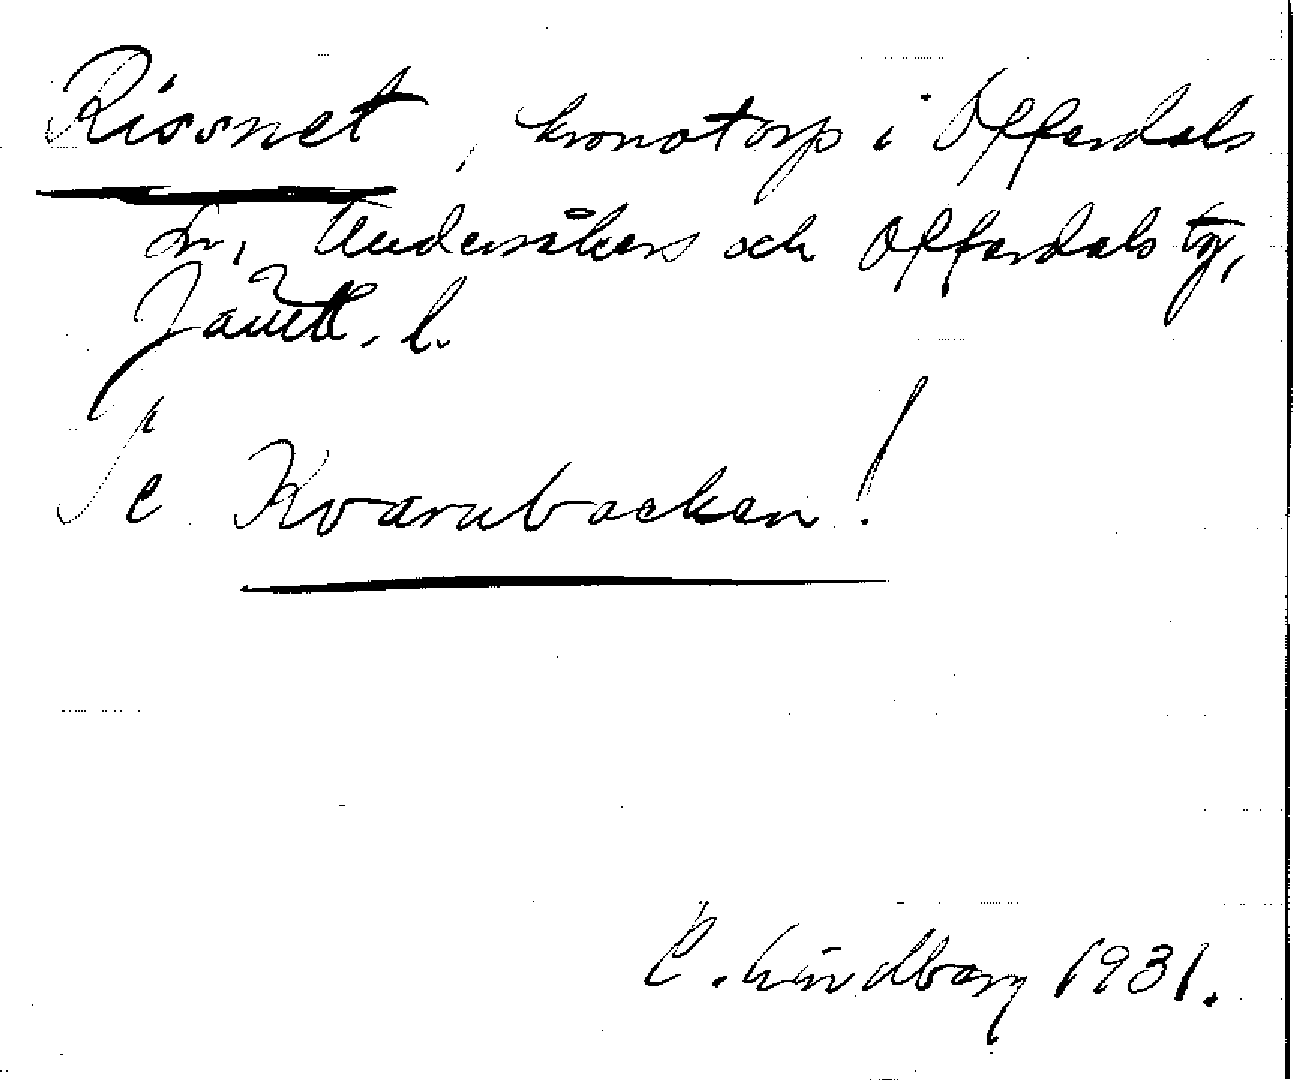 Rissnet, kronotorp i Offerdals
sn, Undersåkers och Offerdals tg,
Jämtl. l.
Se Kvarnbacken!
C. Lindberg 1931.